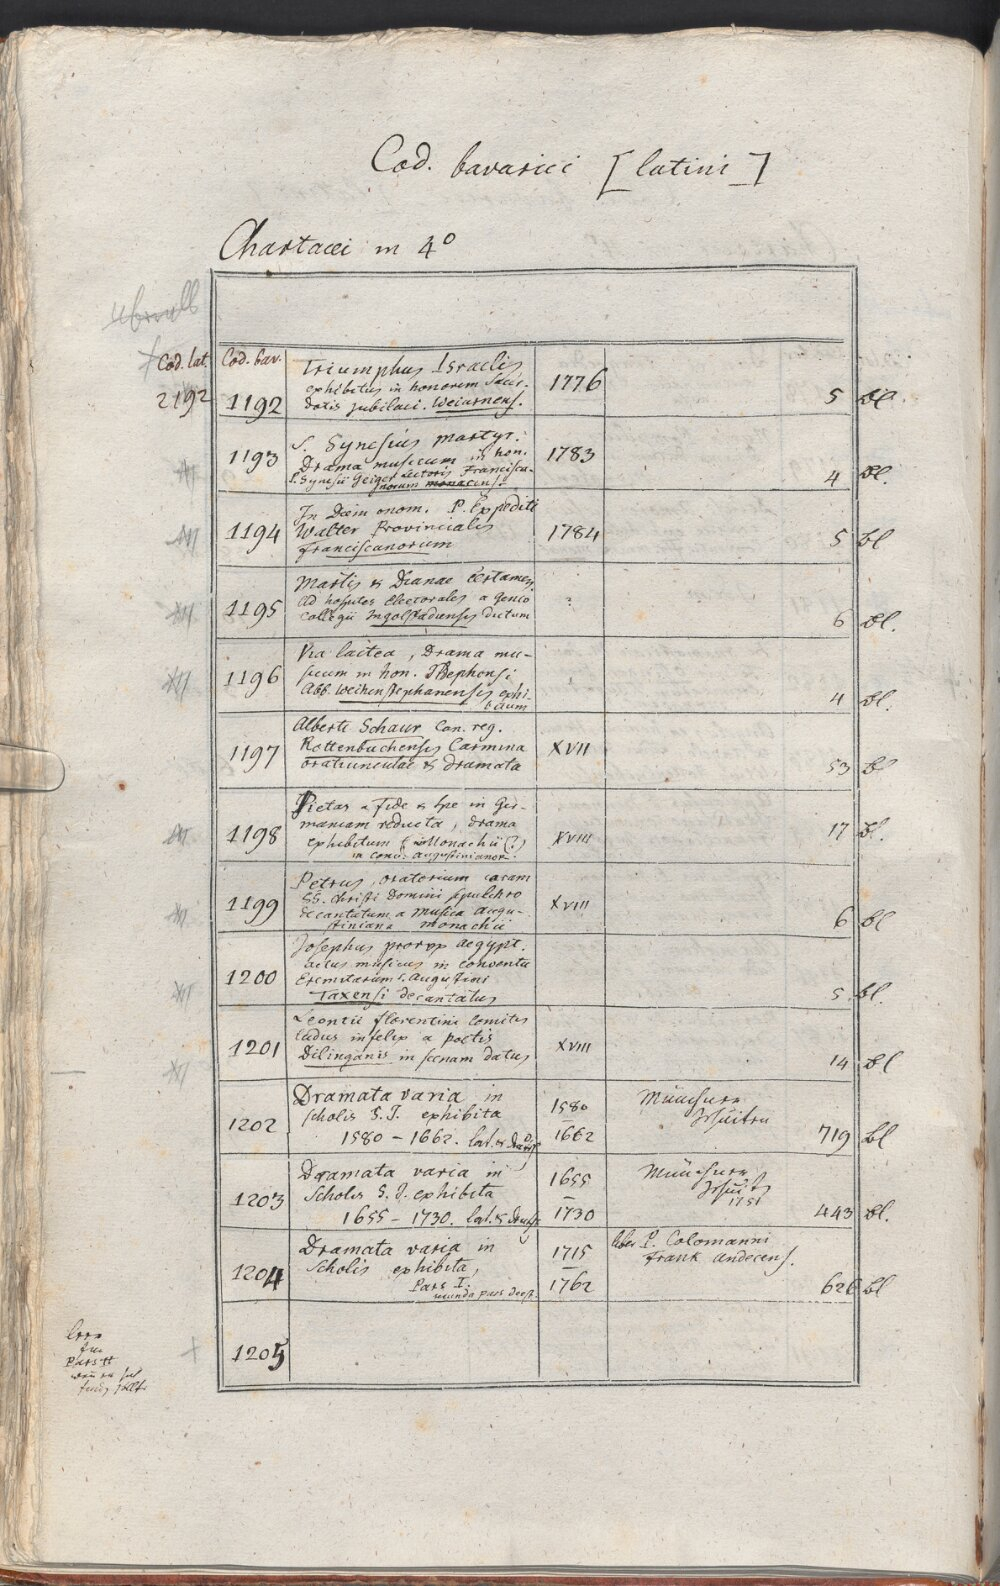 Cod. bavarici [latini]
Chartacei in 4º
Cod. lat. Cod. bav.
2192
1192 Triumphus Israelis 1776 5 Bl.
exhibitus in honorem Sacer-
dotis jubilaei. Weiarnens.
1193 S. Synesius martyr. 1783 4 Bl.
Drama musicum in hon.
P. Synesii Geiger Lectoris Francisca-
norum monacens.
1194 In Diem onom. P. Expediti 1784 5 bl
Walter Provincialis
Franciscanorum
1195 Martis & Dianae Certamen ? 6 Bl.
ad hospites Electorales a genio
Collegii Ingolstadiensis dictum
1196 Via lactea, Drama mu- 4 Bl.
sicum in hon. Stephensi
Abb. Weihenstephanensis exhi-
bitum
1197 Alberti Schaur Can. reg. XVII 53 Bl
Rottenbuchensis Carmina
oratiunculae & dramata
1198 Pietas a Fide & spe in Ger- XVIII 17 Bl.
maniam reducta, drama
exhibitum Monachii (?)
in conv. Augustinianor.
1199 Petrus, oratorium coram XVIII 6 bl
SS. Christi Domini sepulchro
decantatum a musica Augu-
stiniana Monachii
1200 Josephus prorex Aegypt. 5 bl.
actus musicus in conventu
Eremitarum S. Augustini
Taxensi decantatus
1201 Leontii florentini Comitis XVIII 14 Bl
ludus infelix a poetis
Dilinganis in scenam datus
1202 Dramata varia in 1580 719 bl
scholis S. J. exhibita 1662
1580 – 1662. lat. &
1203 Dramata varia in 1655 443 Bl.
Scholis S. J. exhibita –
1655 – 1730. lat. & 1730
1751
1204 Dramata varia in 1715 liber P. Colomanni
Scholis exhibita, – Frank andecens.
Pars I. 1762 626 bl
secunda pars deest.
1205
Pars II